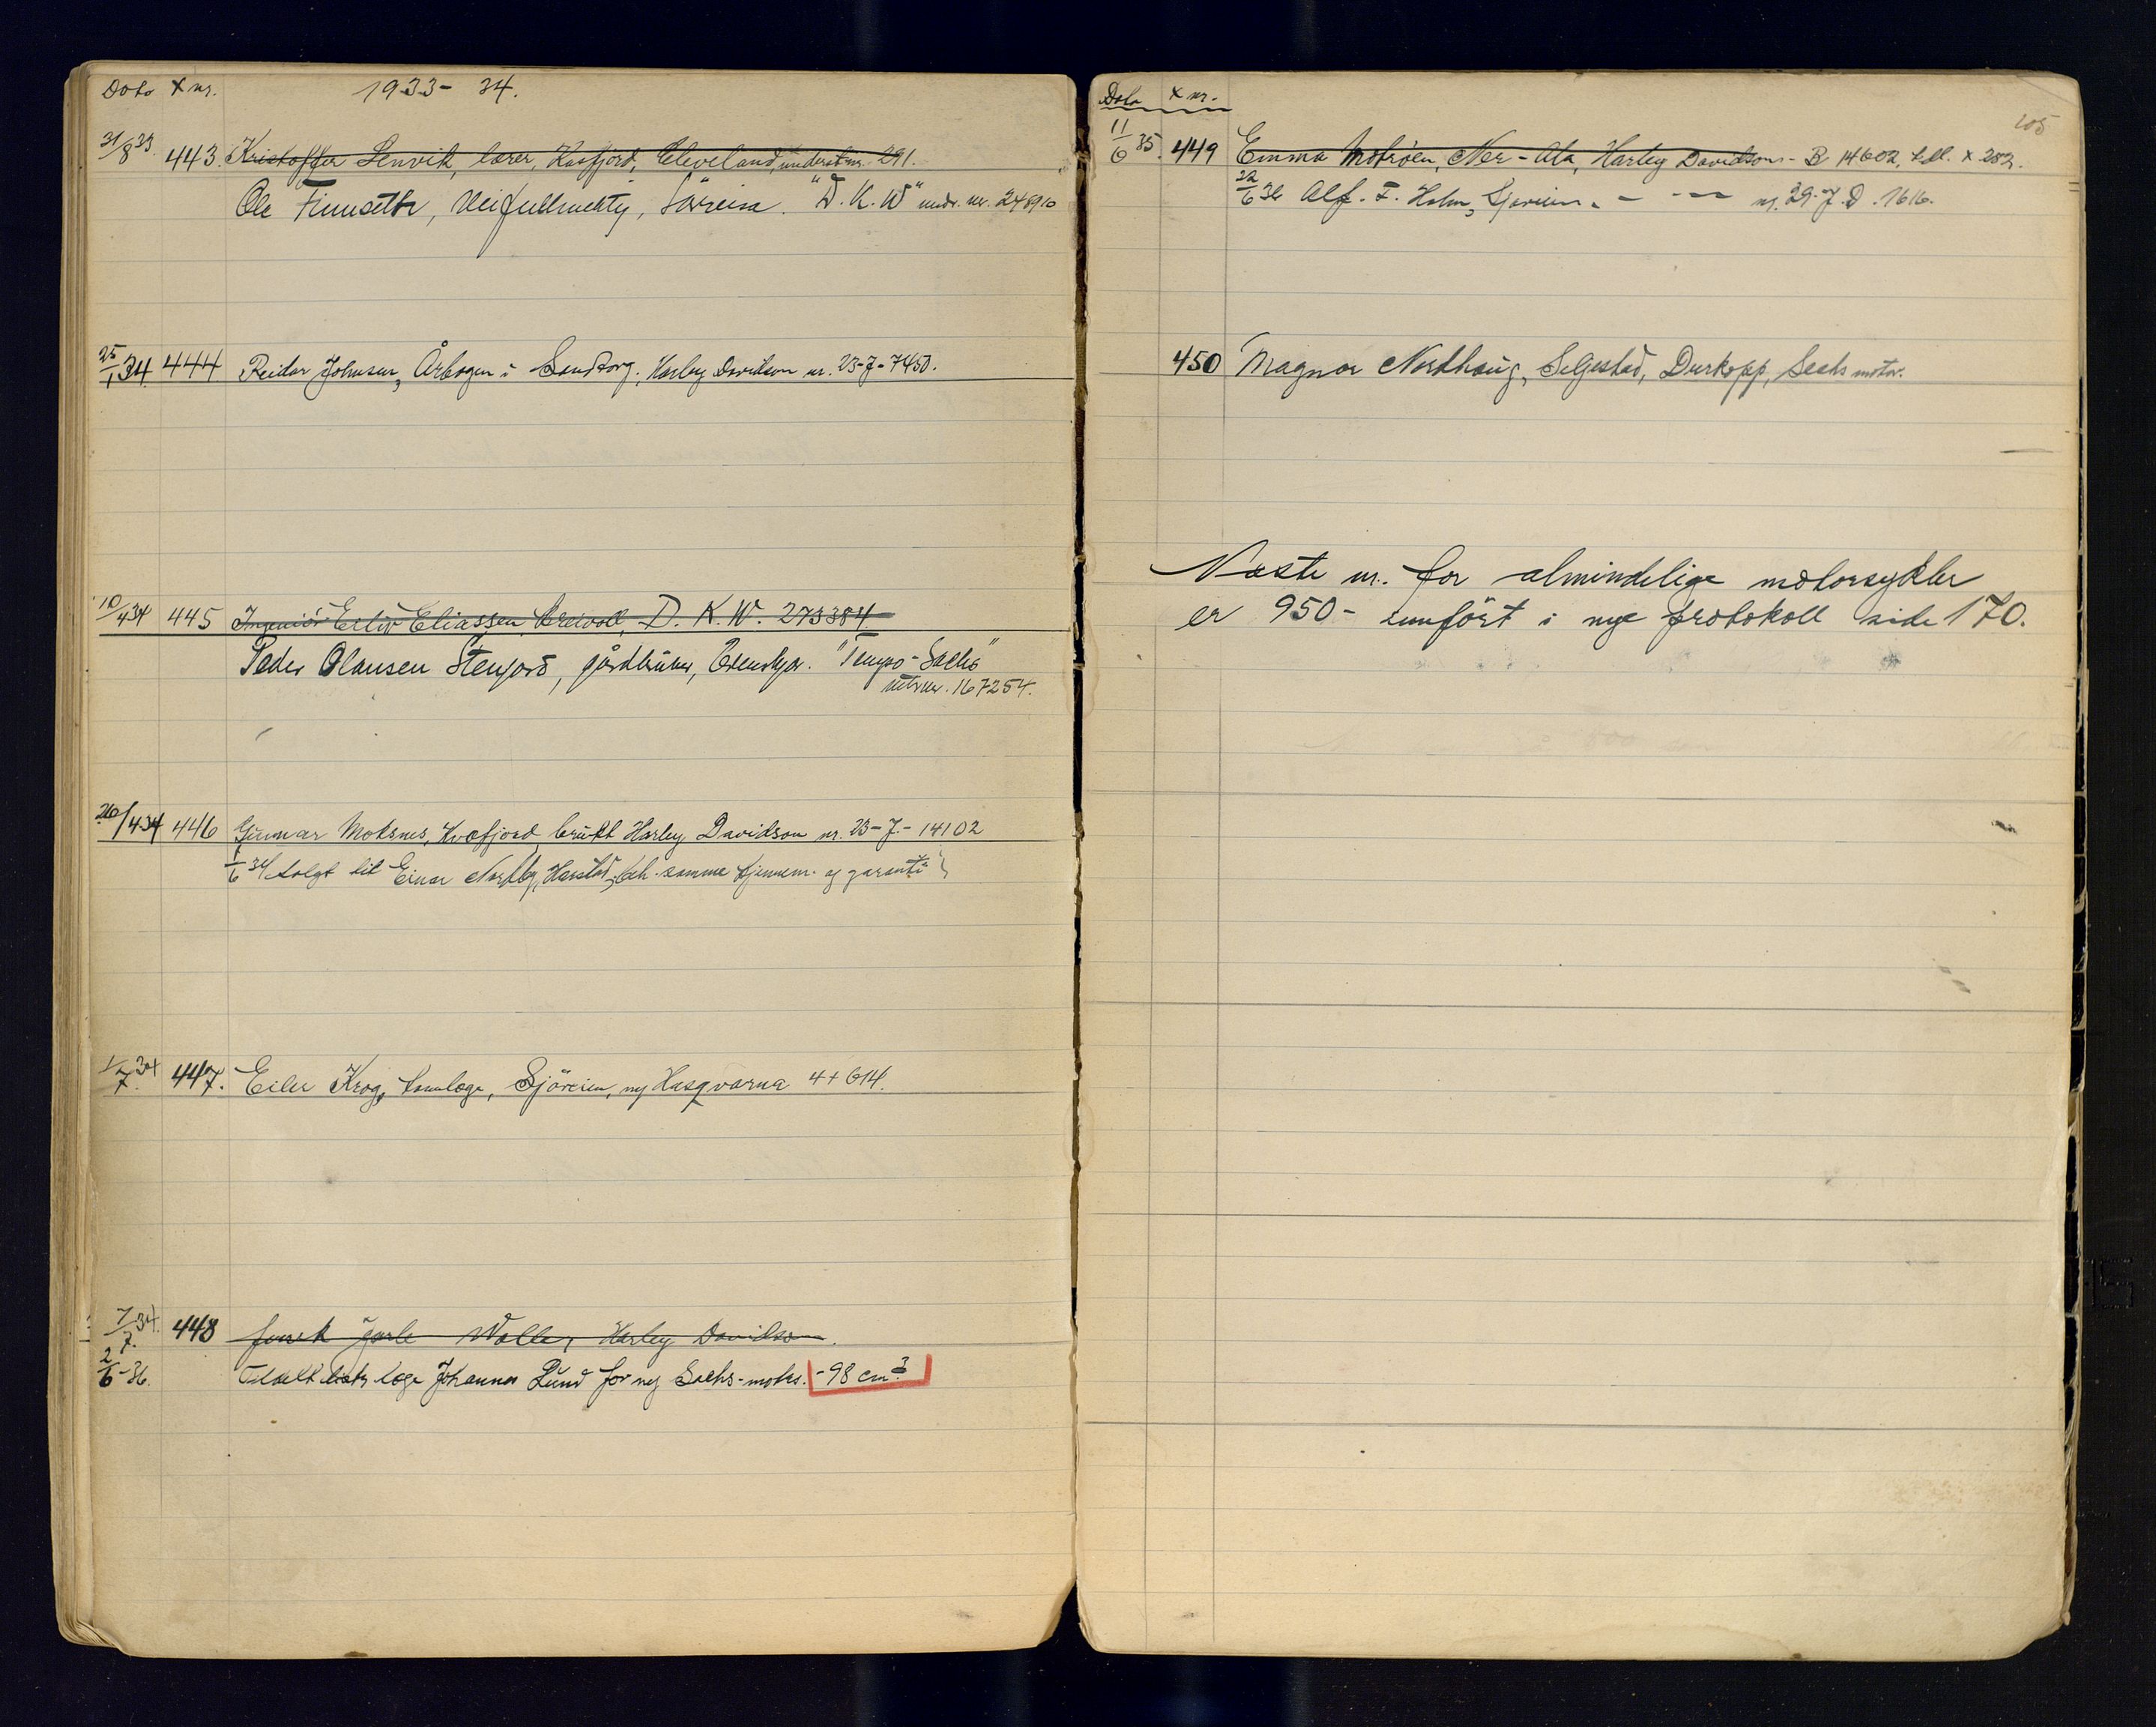 Dato X nr. 1933- 34.
31/8 33. 443. Kristoffer Lenvik, lærer, Kasfjord, Cleveland, understnr. 291.
Ole Finnseth, Veifullmektig, Sörreisa. "D.K.W" under. nr. 248910
25/1 34 444 Reidar Johnsen, Årbogen i Sandtorg. Harley Davidson nr. 23-J-7450.
10/4 34 445 Ingeniör Erliv Eliassen, D.K.W. 273384
Peder Olausen Stenjord, gårdbruker, "Tempo-Sachs"
nr. 167254.
26/4 34 446 Gunnar Moksnes, Kvæfjord, brukt Harley Davidson nr. 23-J-14102
1/6 34 solgt til Einar Nordby, Harstad, samme kjennem. og garanti
1/7 34 447. Eiler Krog, Sjöveien, ny Husqvarna 4+614.
7/7 34. 448 fensk Jarle Wolle, Harley Davidson.
2/6-36. Tildelt lege Johannes Lund for ny Sachs-motors. -98 cm³
Dato X nr.
105
11/6 35. 449 Emma Motröen, Ner-Ala, Harley Davidson - B 14602, X 282.
22/6 36 Alf. F. Holm, Sjøveien. - - - nr. 29.J.D.1616.
450 Magnar Nordhaug, Seljestad, Durkopp, Sachs motor.
Næste nr. for almindelige motorsykler
er 950- innfört i nye protokoll side 170.